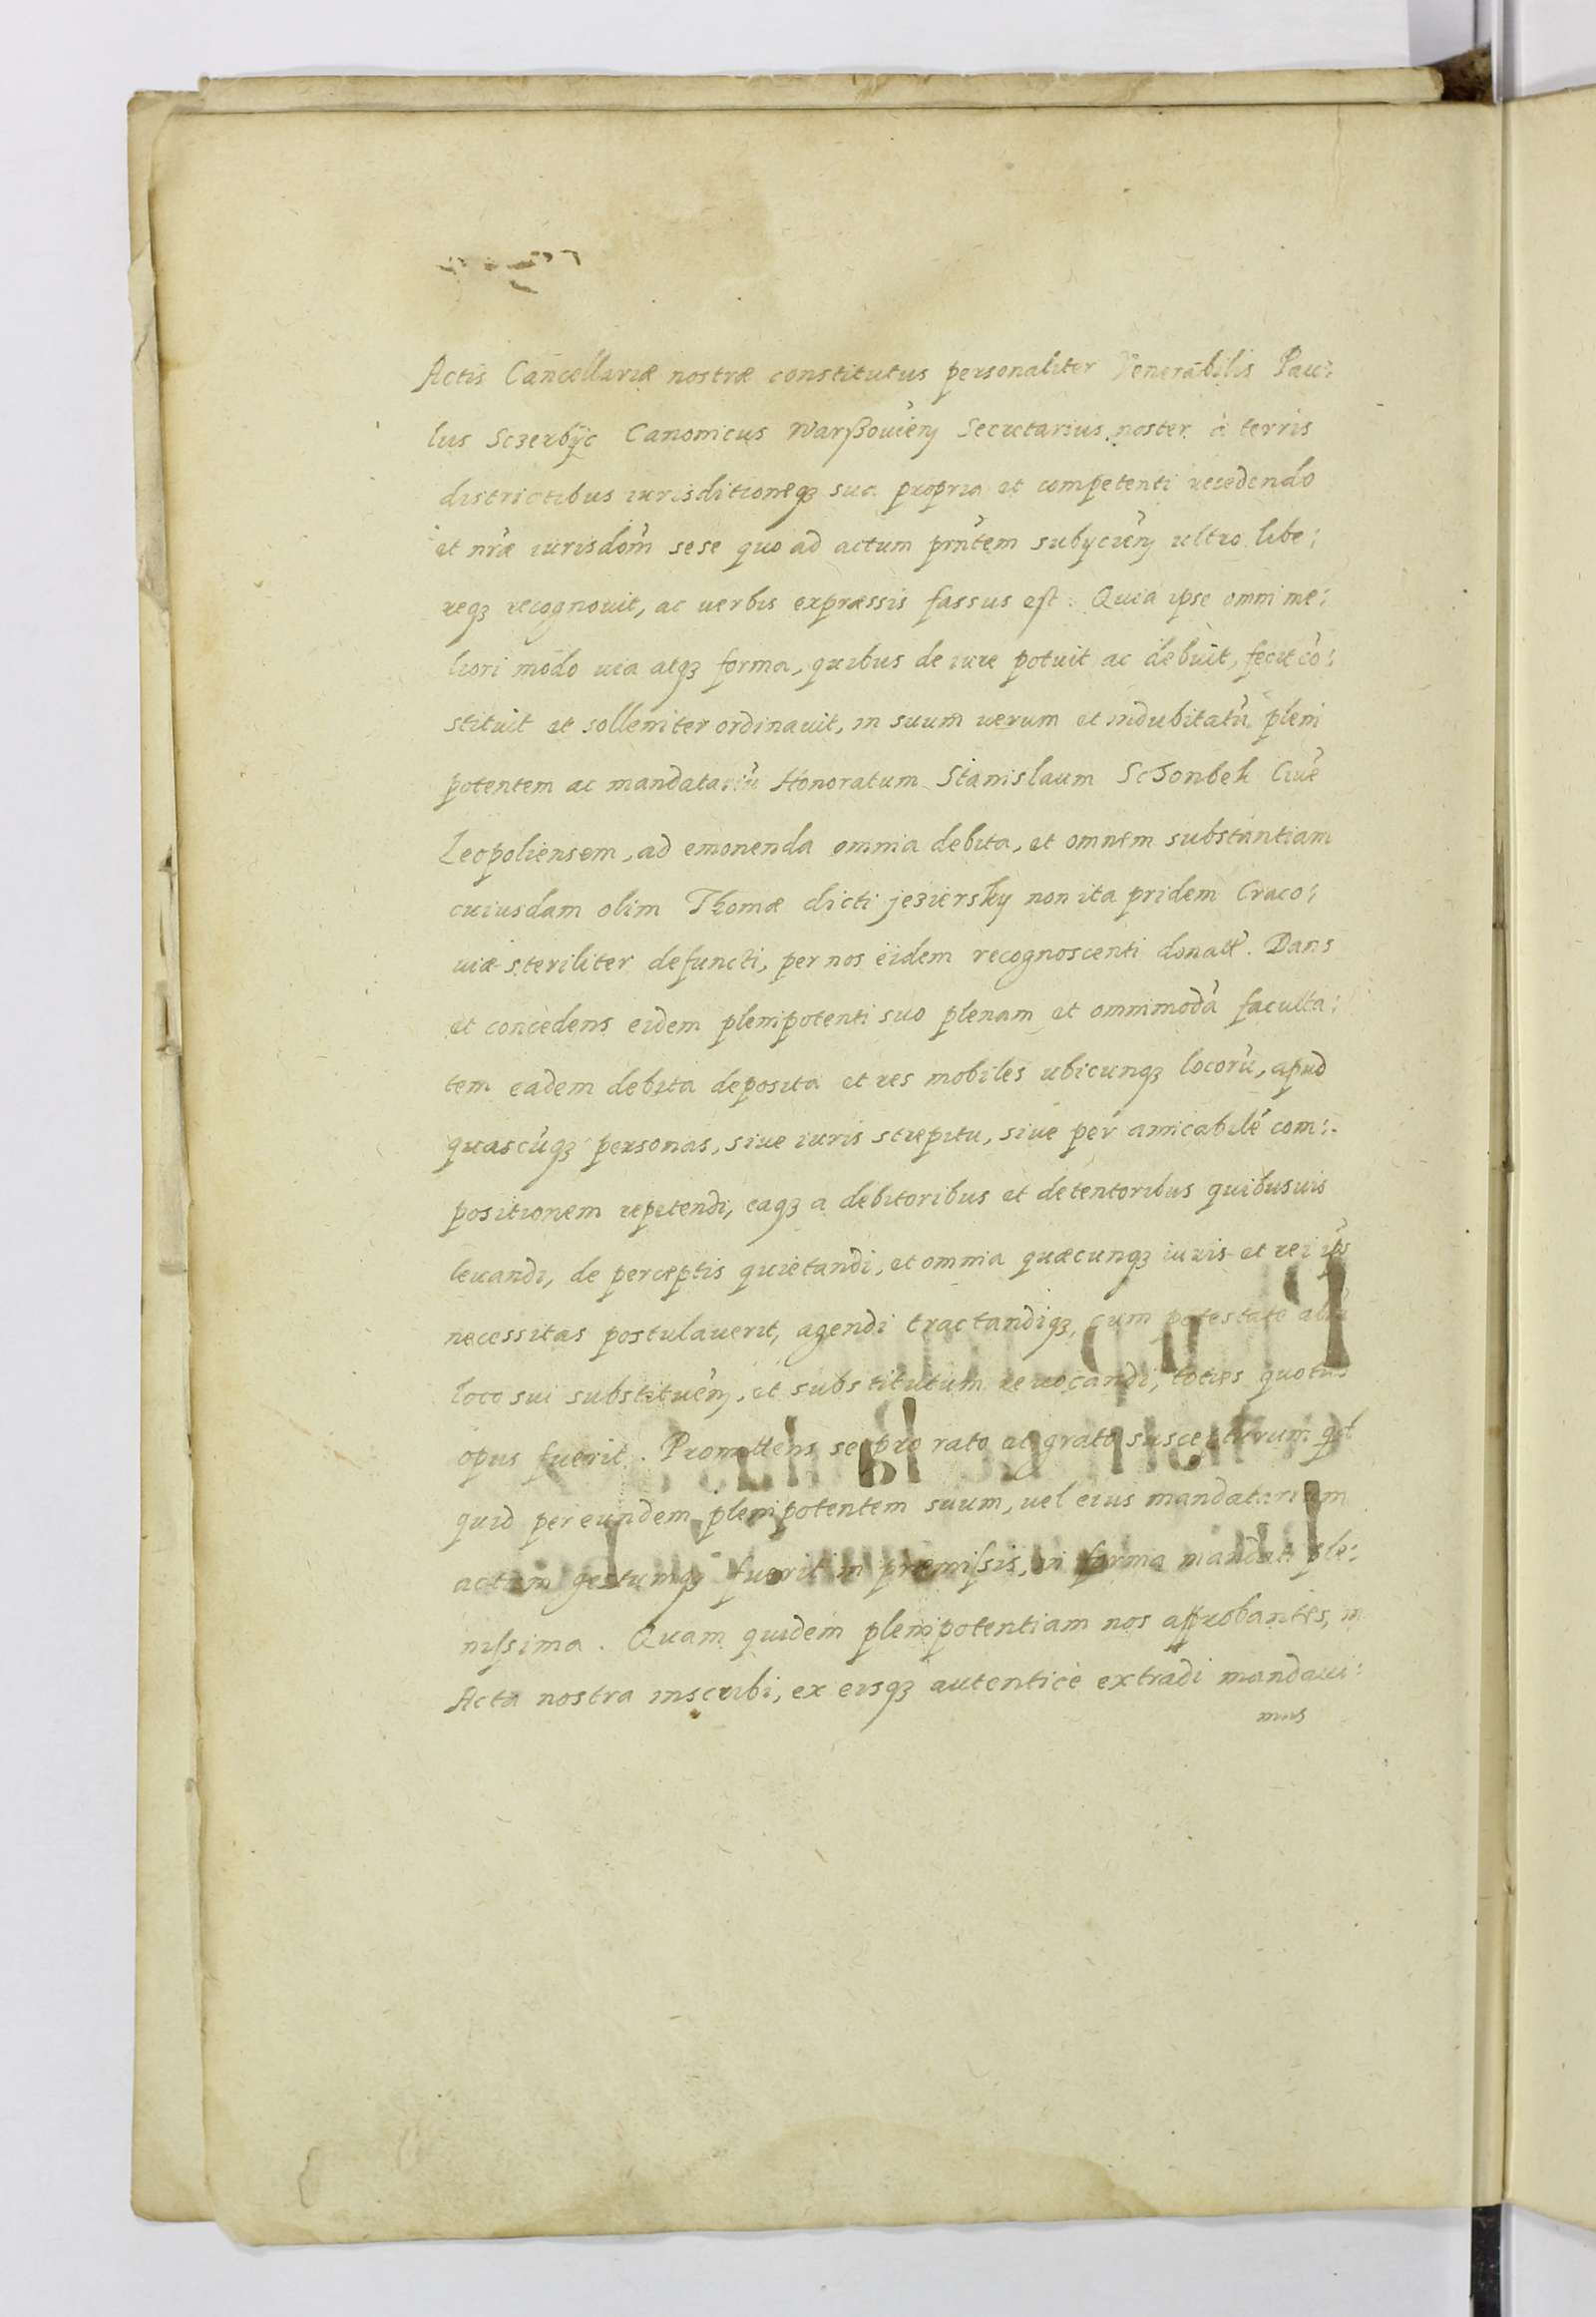 Actis Cancellariæ nostræ constitutus personaliter Venerabilis Pau:
lus Sczerbÿc Canonicus Warßouień Secretarius noster à terris
districtibus iurisditioneqȝ sua propria et competenti recedendo
et nr̃æ iurisdõni sese quo ad actum prñtem subÿcień ultro libe:
reqȝ recognouit, ac uerbis expræssis fassus est. Quia ipse omni me:
liori modo uia atqȝ forma, quibus de iure potuit ac debuit, fecit cõ:
stituit et solleniter ordinauit, in suum uerum et indubitatũ pleni
potentem ac mandatariũ Honoratum Stanislaum Scionbek Ciuẽ
Leopoliensem, ad emonenda omnia debita, et omnem substantiam
cuiusdam olim Thomæ dicti jeziersky non ita pridem Craco:
uiæ steriliter defuncti, per nos eidem recognoscenti donatã. Dans
et concedens eidem plenipotenti suo plenam et omnimodã faculta:
tem eadem debita deposita et res mobiles ubicunqȝ locorũ, apud
quascũqȝ personas, siue iuris strepitu, siue per amicabilẽ com:
positionem repetendi, eaqȝ a debitoribus et detentoribus quibusuis
leuandi, de perceptis quietandi, et omnia quæcunqȝ iuris et rei ip̃s
necessitas postulauerit, agendi tractandiqȝ, cum potestate aliũ
loco sui substitueń, et substitutum reuocandi, toties quoties
opus fuerit. Promittens se pro rato et grato suscepturum qd̃
quid per eundem plenipotentem suum, uel eius mandatarium
actum gestumqȝ fuerit in præmißis, in forma mandati ple:
nißima. Quam quidem plenipotentiam nos approbantes, in
Acta nostra inscribi, ex eisqȝ autenticè extradi mandaui:
mus